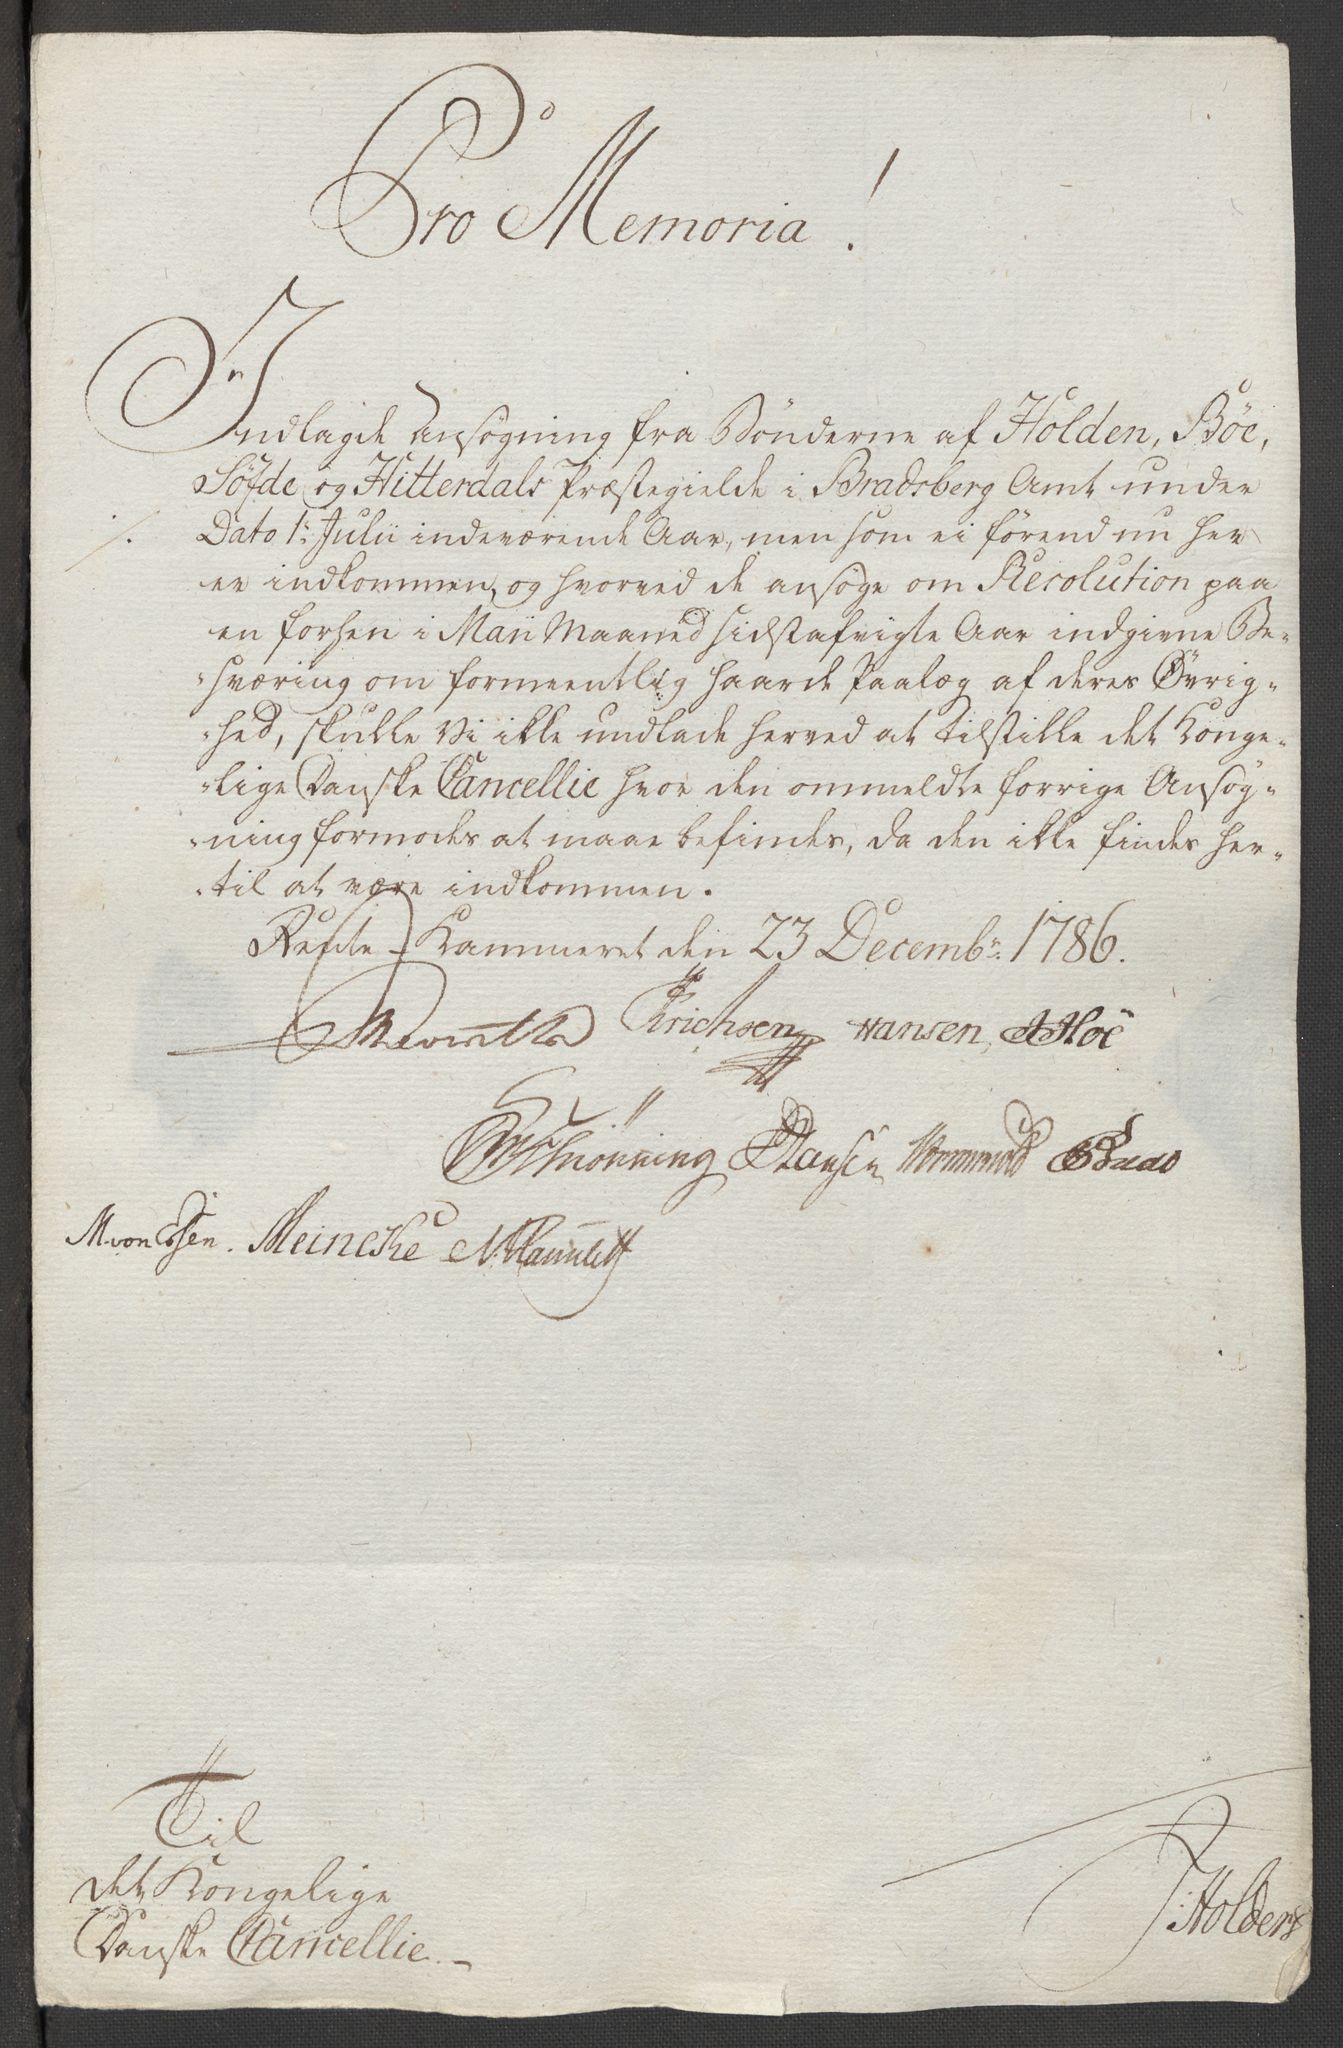 Pro Memoria!
Indlagde Ansøgning fra Bönderne af Holden, Böe,
Söfde og Hitterdals Præstegielde i Bradsberg Amt under
Dato 1: Julii indeværende Aar, men som ei förend nu her
er indkommen, og hvorved de ansöge om Resolution paa
en forhen i Maii Maaned sidstafvigte Aar indgivne Be-
-sværing om formeentlig haarde Paalæg af deres Øvrig-
-hed, skulle Vi ikke undlade herved at tilstille det Konge-
-lige Danske Cancellie hvor den ommeldte forrige Ansög-
-ning formodes at maae befindes, da den ikke findes her-
-til at være indkommen.
Rente-Kammeret den 23 Decembr: 1786.
Erichsen Hansen, Höe
Schiönning Hansen
M. von Essen. Meincke
Til
det Kongelige
Danske Cancellie.
Holden